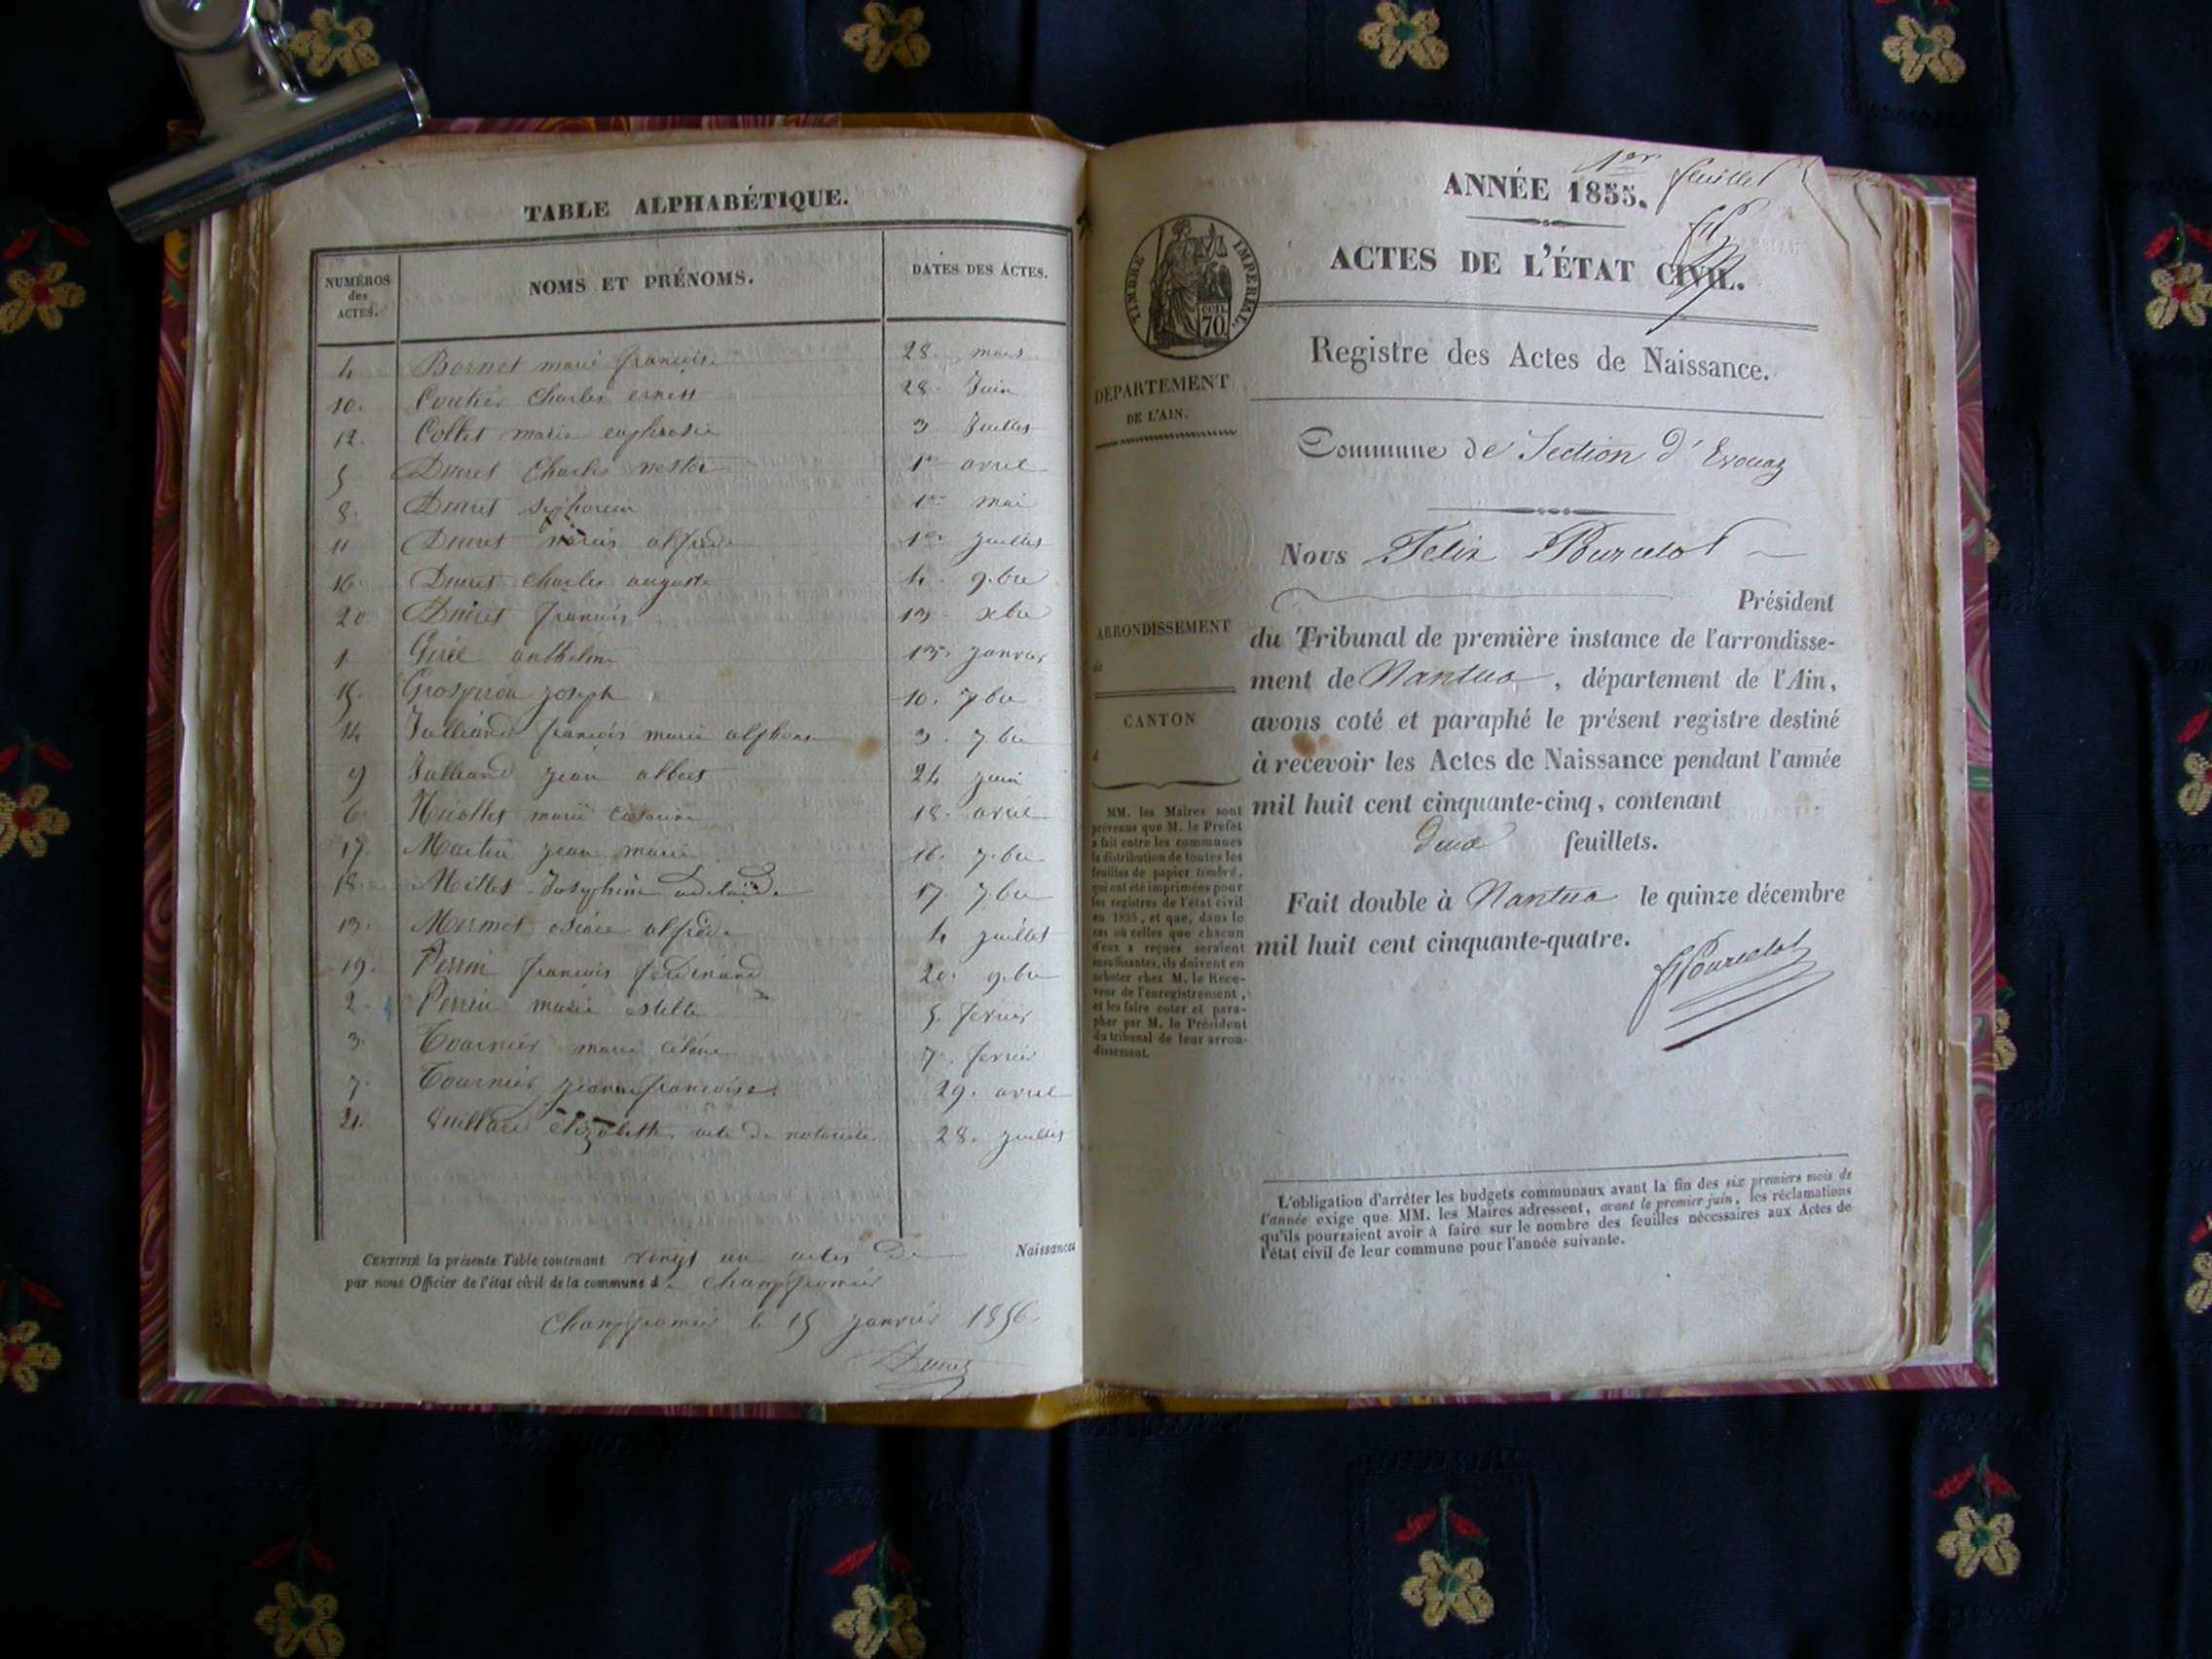 TABLE ALPHABÉTIQUE.
NUMÉROS
des
ACTES.
NOMS ET PRÉNOMS.
DATES DES ACTES.
4 Bornet marie françoise 28 mars
10. Coutier Charles ernest 28 Juin
12. Collet marie euphrasie 3 Juillet
5 Ducret Charles nestor 1er avril
8. Ducret 1er mai
11 Ducret alfred 1er juillet
16 Ducret Charles auguste 4 9.bre
20 Ducret françois 13 xbre
1 Girel anthelme 13 janvier
15. joseph 10. 7bre
14 Julliand françois marie alphonse 3. 7.bre
9 Julliand jean albert 24 juin
6 marie 18. avril
17. Martin jean marie 16. 7.bre
18. Millet Josephine adelaïde 17. 7.bre
13. Mermet alfred 4 juillet
19. Perrin françois ferdinand 20. 9.bre
2. Perrin marie estelle 5. fevrier
3. Tournier marie 7. fevrier
7. Tournier jeanne françoise 29. avril
21. Vuillard élizabeth acte de notoriété 28. juillet
CERTIFIÉ la présente Table contenant vingt un actes de Naissances
par nous Officier de l'état civil de la commune de Champfromier
Champfromier le 15 janvier 1856.
Ducret
1er feuillet
ANNÉE 1855.
ACTES DE L'ÉTAT CIVIL.
TIMBRE IMPÉRIAL.
CEN.
70
Registre des Actes de Naissance.
DÉPARTEMENT
DE L'AIN.
Commune de Section d'Evouaz
Nous Felix Pourcelot
Président
ARRONDISSEMENT
de
du Tribunal de première instance de l'arrondisse-
ment de Nantua, département de l'Ain,
CANTON
d
avons coté et paraphé le présent registre destiné
à recevoir les Actes de Naissance pendant l'année
mil huit cent cinquante-cinq, contenant
deux feuillets.
MM. les Maires sont
prévenus que M. le Préfet
a fait entre les communes
la distribution de toutes les
feuilles de papier timbré,
qui ont été imprimées pour
les registres de l'état civil
en 1855, et que, dans le
cas où celles que chacun
d'eux a reçues seraient
insuffisantes, ils doivent en
acheter chez M. le Rece-
veur de l'enregistrement,
et les faire coter et para-
pher par M. le Président
du tribunal de leur arron-
dissement.
Fait double à Nantua le quinze décembre
mil huit cent cinquante-quatre.
F Pourcelot
L'obligation d'arrêter les budgets communaux avant la fin des six premiers mois de
l'année exige que MM. les Maires adressent, avant le premier juin, les réclamations
qu'ils pourraient avoir à faire sur le nombre des feuilles nécessaires aux Actes de
l'état civil de leur commune pour l'année suivante.